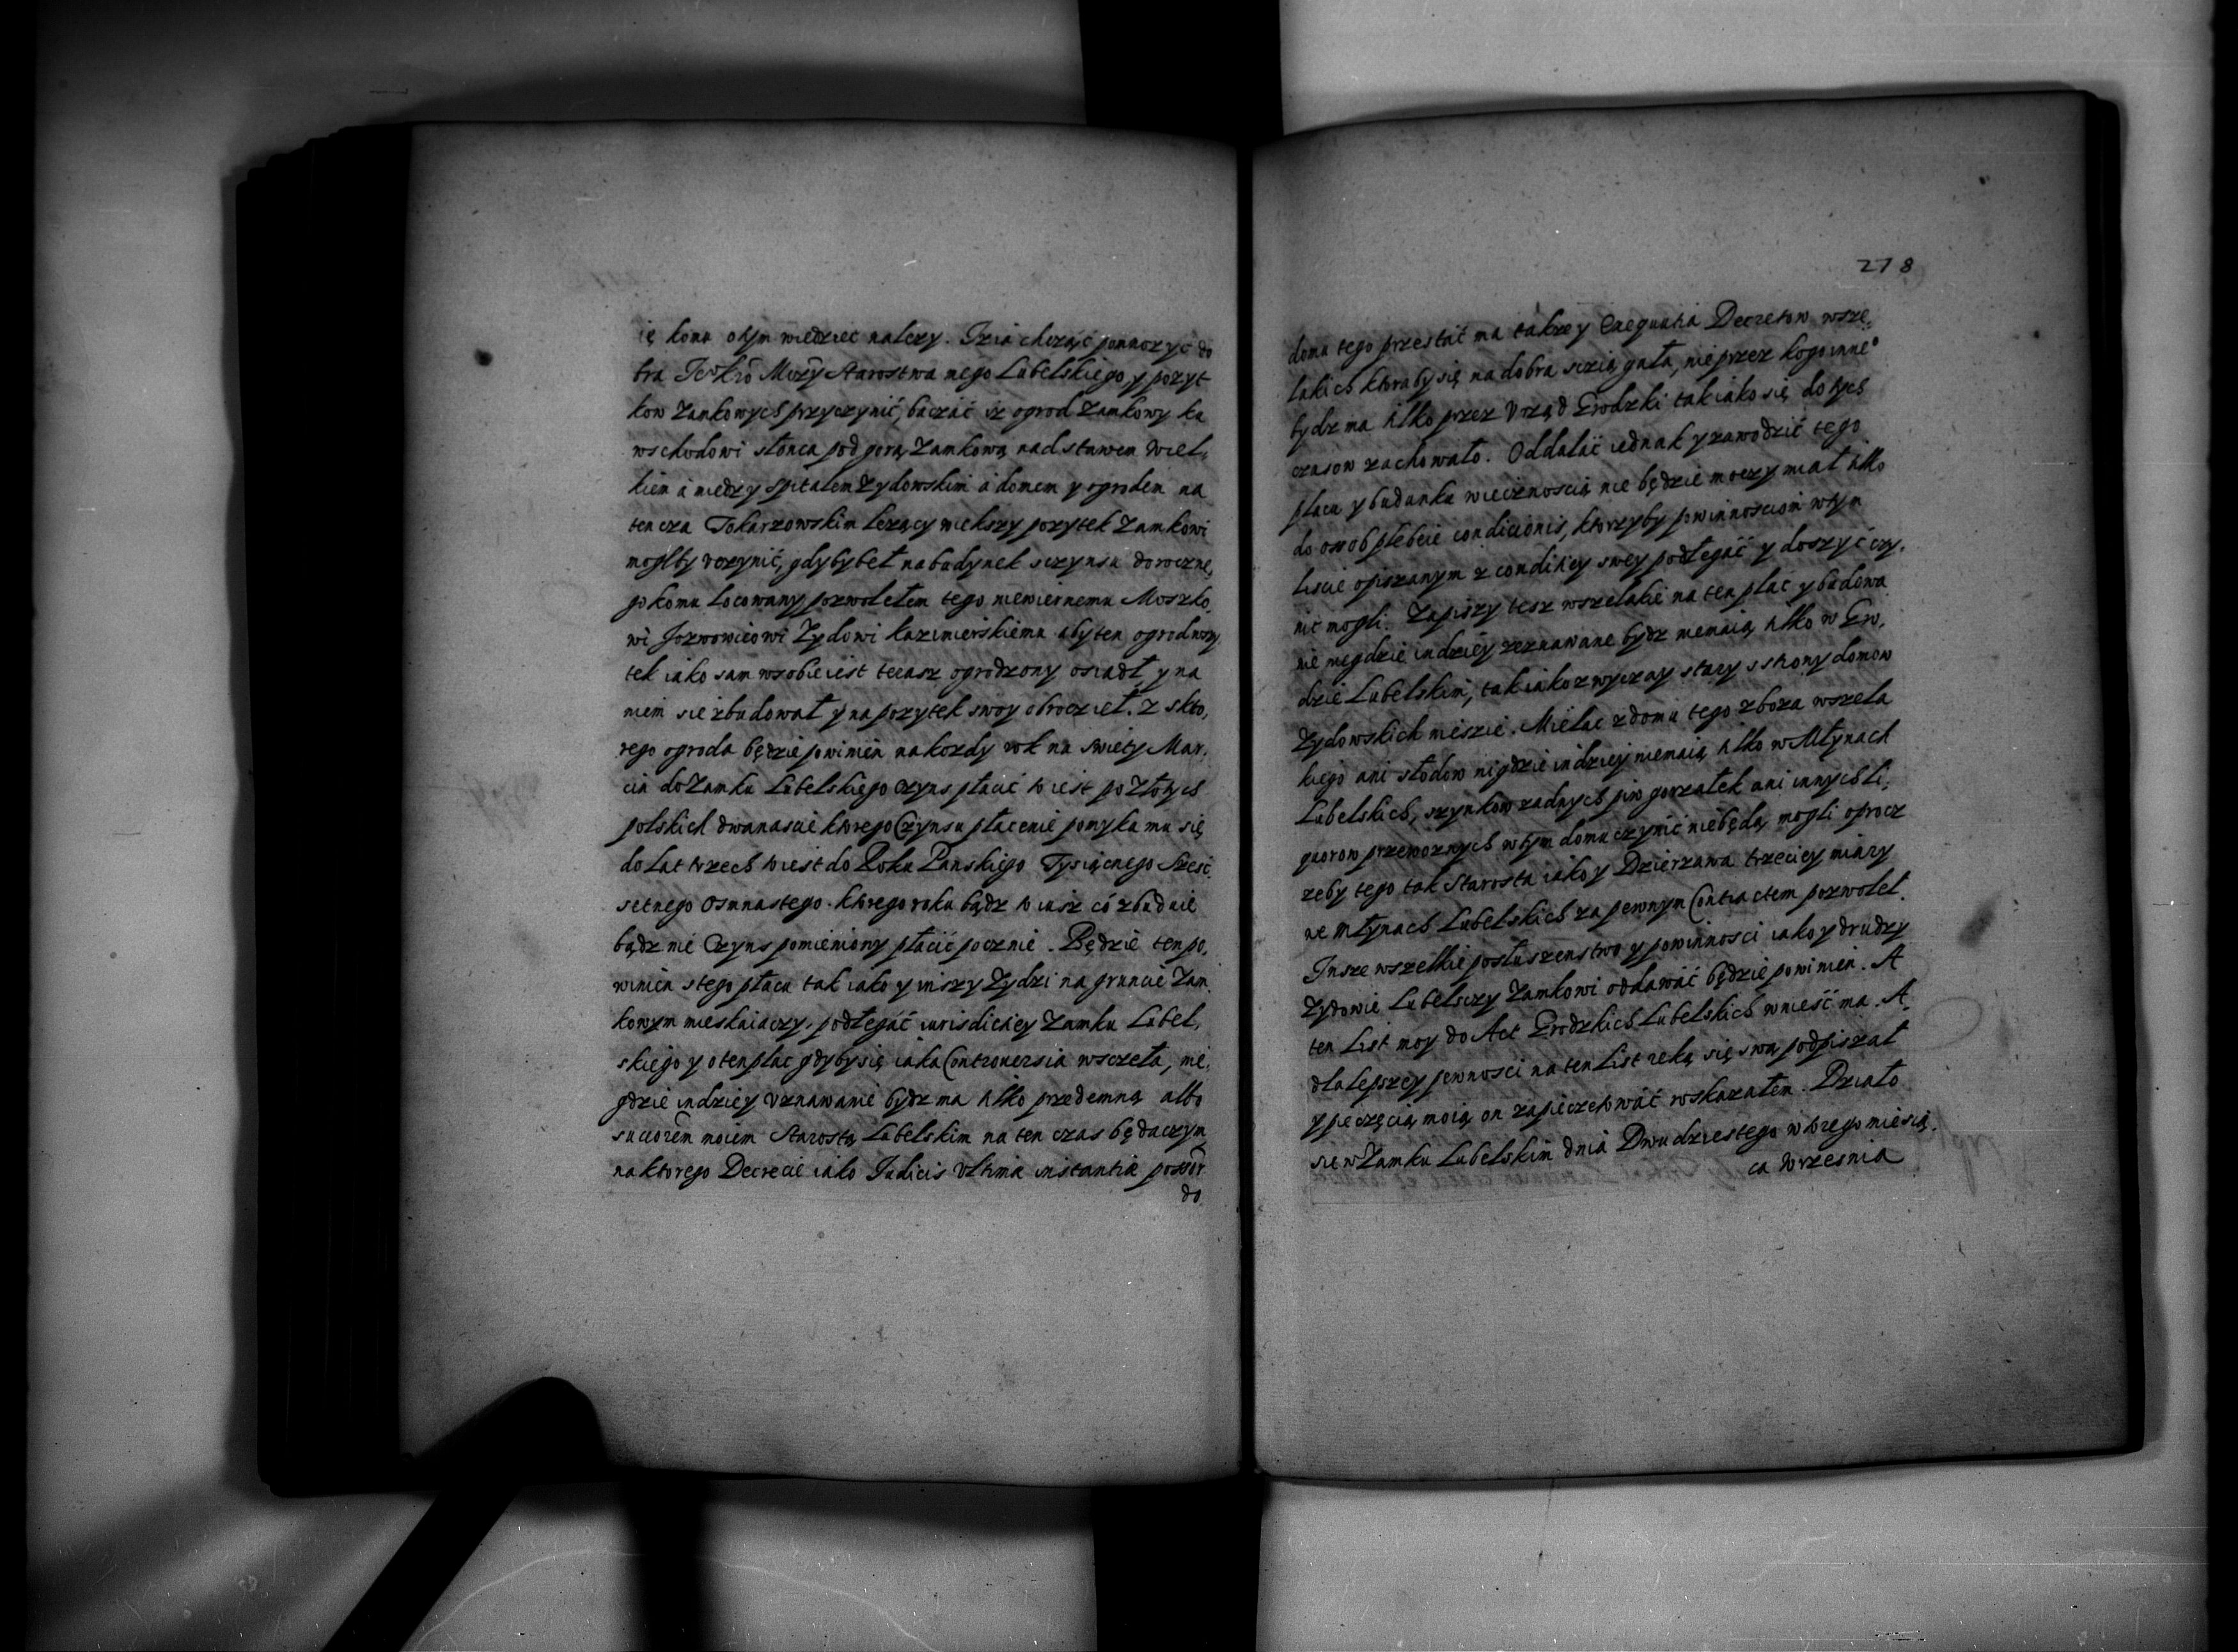 ię komu otym wiedziec nalezy. Iz ia chcząć pomnozyc do
bra Je° Kró Mczy Starostwa mego Lubelskiego, y pozyt
kow Zamkowych przyczynić, bacząć iz ogrod Zamkowy ku
wschodowi słonca pod gorą Zamkową nad stawem Wiel,
kiem á miedzy spitalem Zydowskim á domem y ogrodem na
ten cza Tokarzowskim lezący wiekszy pozytek Zamkowi
mogłby vczynić, gdyby beł na budynek sczynsu doroczne,
go komu locowany pozwolełem tego niewiernemu Moszko,
wi Jozwowicowi Zydowi kazimierskiemu aby ten ogrod wszy
tek iako sam wsobie iest teraz ogrodzony osiadł y na
niem sie zbudował y na pozytek swoy obrocieł. Z kto,
rego ogroda będzie powinien na kozdy rok na swiety Mar,
cin do Zamku Lubelskiego Czyns płacić to iest po Złotych
polskich dwanascie ktorego Czynsu płacenie pomyka mu się
do Lat trzech to iest do Roku Panskiego Tysiącnego Szesc,
setnego Osmnastego. ktorego roku bądz to iusz co zbuduie
bądz nie Czyns pomieniony płacić pocznie. Będzie ten po,
winien stego płacu tak iako y inszy Zydzi na gruncie Zam,
kowym mieskaiączy, podłegáć iurisdictiey Zamku Lubel,
skiego y o ten plac gdyby się iaka Controuersia wszczeła, nie,
gdzie indziey vznawanie bydz ma tilko przedemną albo
sucorem moiem Starostą Lubelskim na ten czas będaczym
na ktorego Decrecie iako Judicis Vltimæ instantiæ possor
do
278
domu tego przestać ma takze y Exequutia Decretow wsze,
lakich ktoraby się na dobra sciągała, nie przez kogo inne°
bydz ma tilko przez Vrząd Grodzki tak iako się do tych
czasow zachowało. Oddalać iednak y zawodzić tego
placu y budunku wiecznoscią nie będzie moczy miał tilko
do osob plebeiæ conditionis, ktorzyby powinnosciom wtym
liscie opiszanym z conditiey swey podłegáć y doszyć czy,
nić mogli. Zapiszy tesz wszelakie na ten plac y budowa
nie niegdzie indziey zeznawane bydz niemaią tilko w Gro,
dzie Lubelskim, tak iako zwyczay stary s strony domow
Zydowskich niesie. Mielac z domu tego zboza wszela
kiego ani słodow nigdzie indziej niemaią tilko w Młynach
Lubelskich, szynkow zadnych piw gorzałek ani innych li,
quorow przewoznych w tym domu czynić niebędą mogli oprocz
zeby tego tak Starosta iako y Dzierzawa trzeciey miary
we młynach Lubelskich za pewnym Contractem pozwoleł.
Insze wszelkie posłuszenstwo y powinnosci iako y drudzy
Zydowie Lubelsczy Zamkowi oddawáć będzie powinien. A
ten List moy do Act Grodzkich Lubelskich wnieść ma. A
dla lepszey pewnosci na ten List ręką się swą podpiszał
y pieczęcią moią on zapieczętować roskazałem. Działo
sie w Zamku Lubelskim dnia Dwudziestego wtorego miesią,
ca Wrzesnia